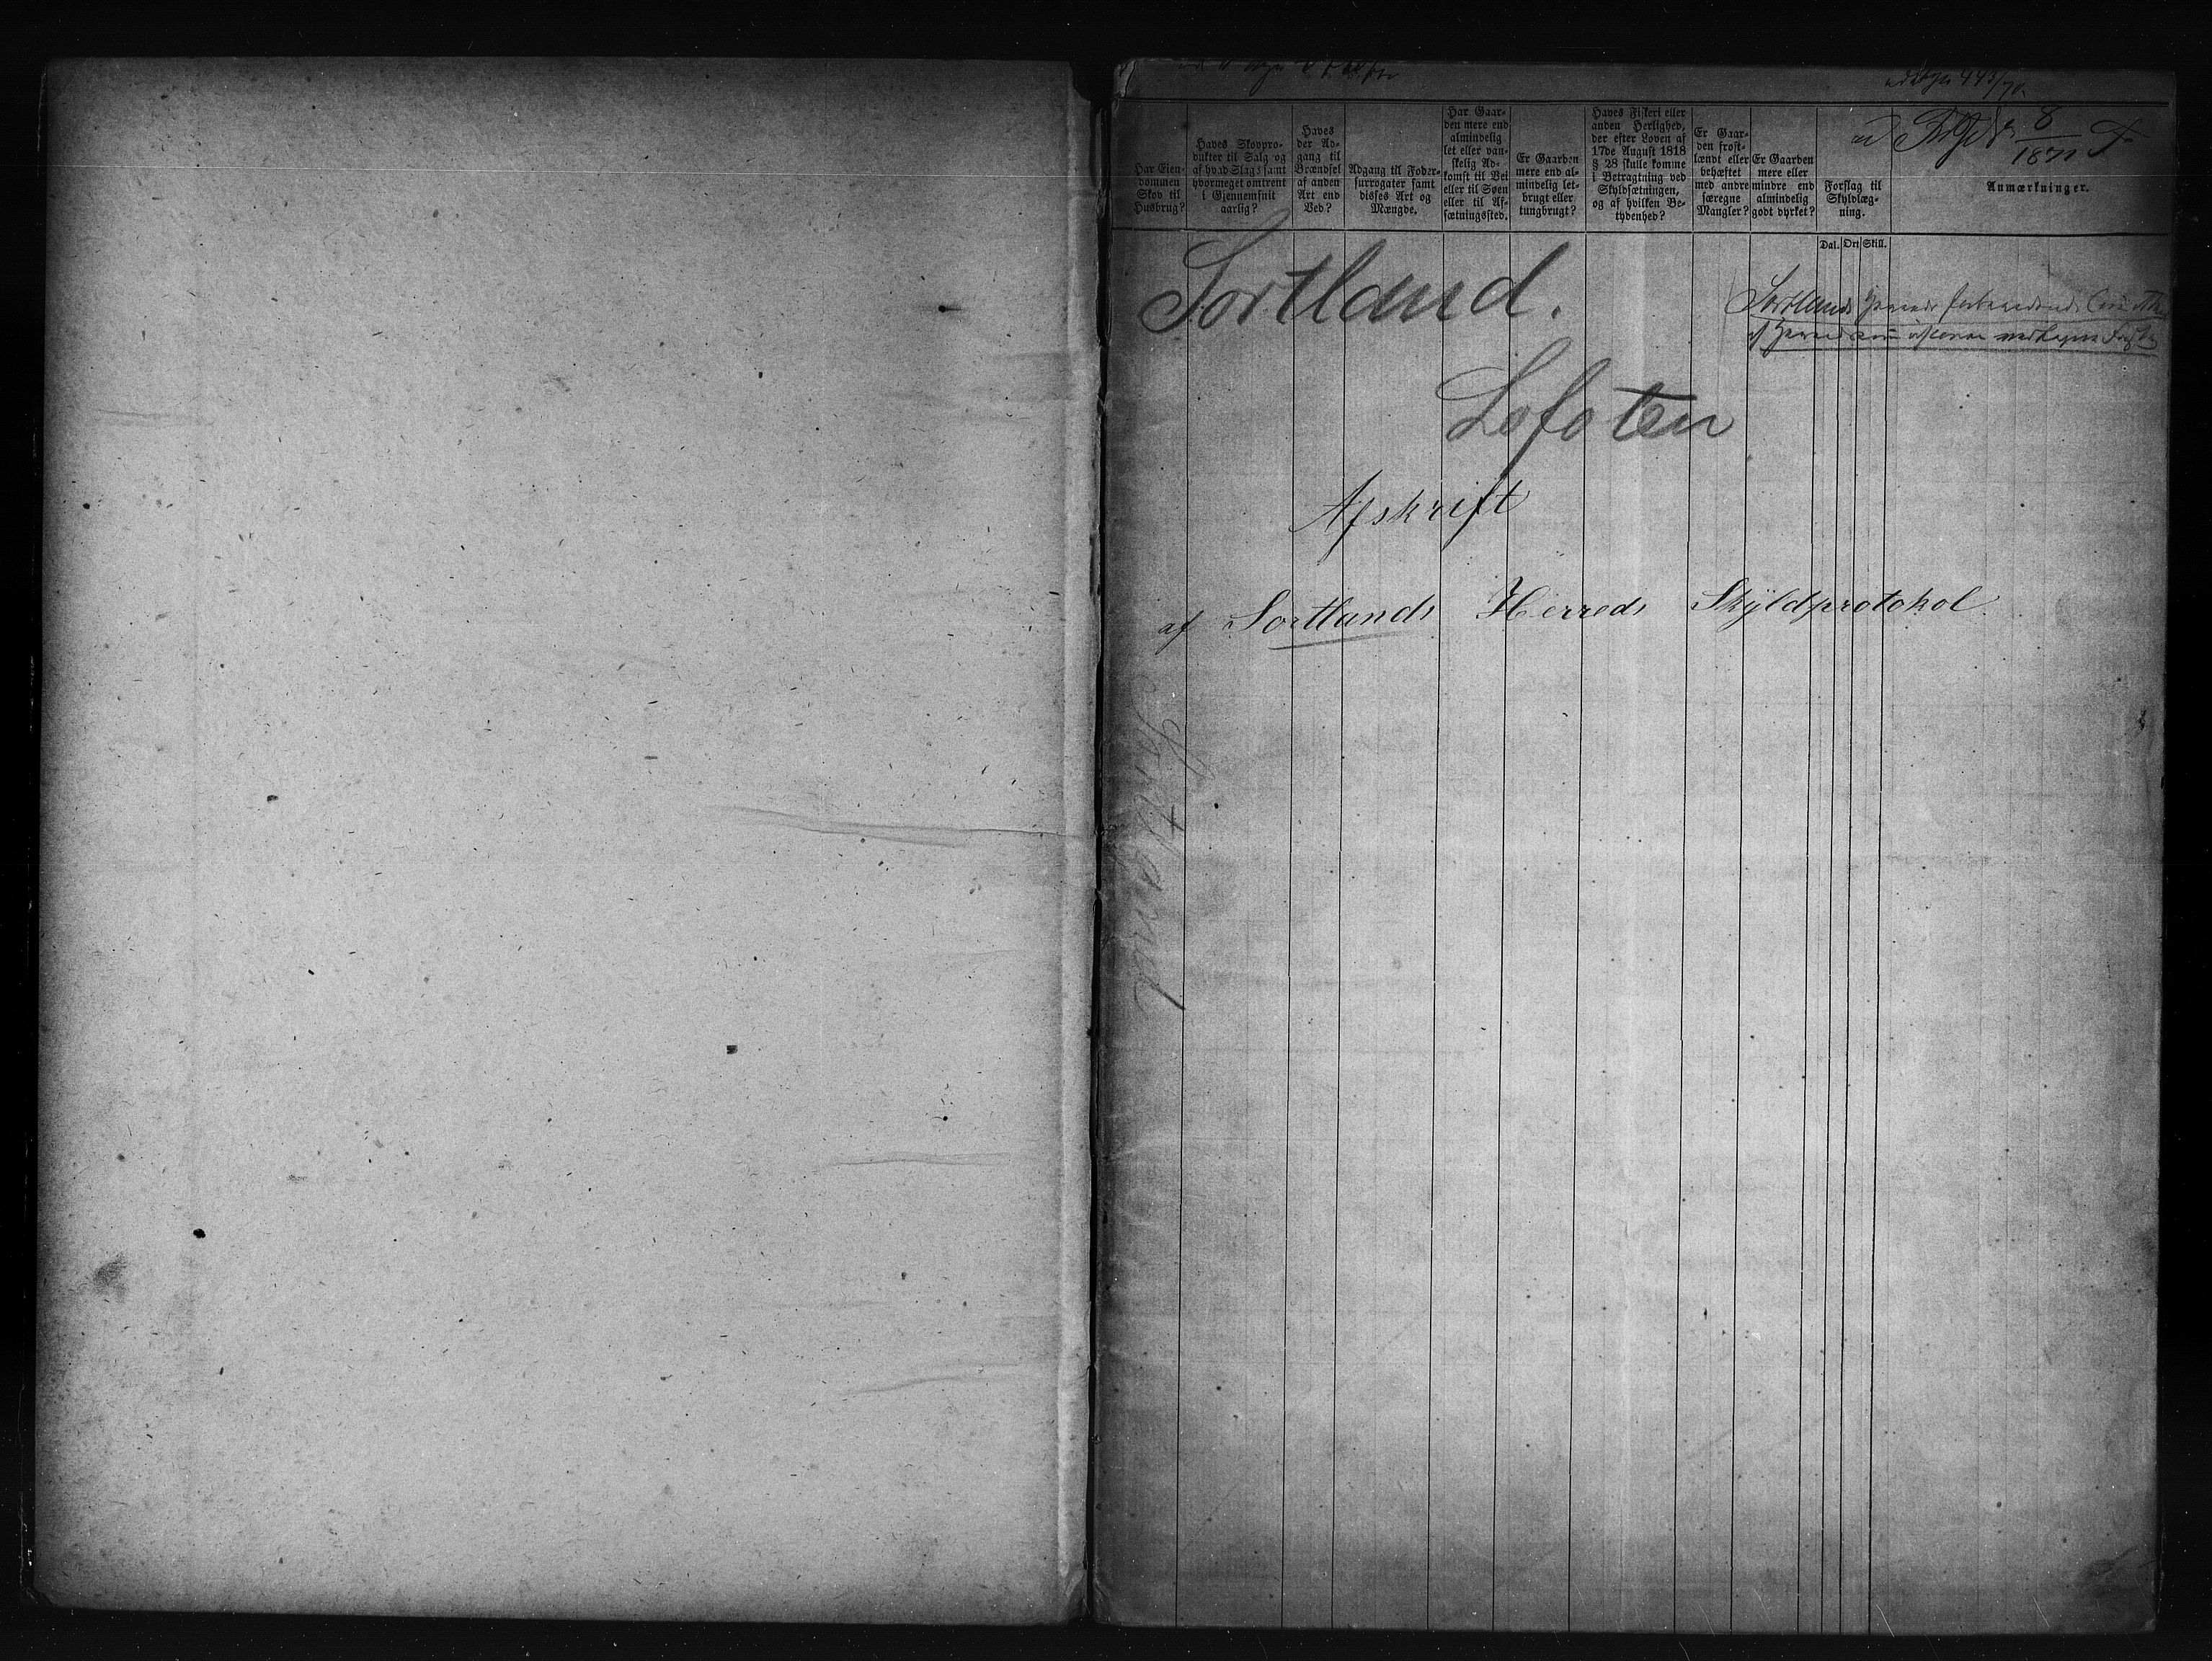 Har Eien-
dommen
Skov til
Husbrug?
Haves Skovpro-
dukter til Salg og
af hvad Slags samt
hvormeget omtrent
i Gjennemsnit
aarlig?
Haves
der Ad-
gang til
Brændsel
af anden
Art end
Ved?
Adgang til Foder-
surrogater samt
disses Art og
Mængde.
Har Gaar-
den mere end
almindelig
let eller van-
skelig Ad-
komst til Vei
eller til Søen
eller til Af-
sætningssted.
Er Gaarden
mere end al-
mindelig let-
brugt eller
tungbrugt?
Haves Fiskeri eller
anden Herlighed,
der efter Loven af
17de August 1818
§ 28 skulle komme
i Betragtning ved
Skyldsætningen,
og af hvilken Be-
tydenhed?
Er Gaar-
den frost-
lændt eller
behæftet
med andre
særegne
Mangler?
Er Gaarden
mere eller
mindre end
almindelig
godt dyrket?
Forslag til
Skyldlæg-
ning.
Dal. Ort Skill.
Anmærkninger.
8
1871
Sortland.
Sortlands
Lofoten
Afskrift
af Sortlands Herreds Skyldprotokol
Sortland